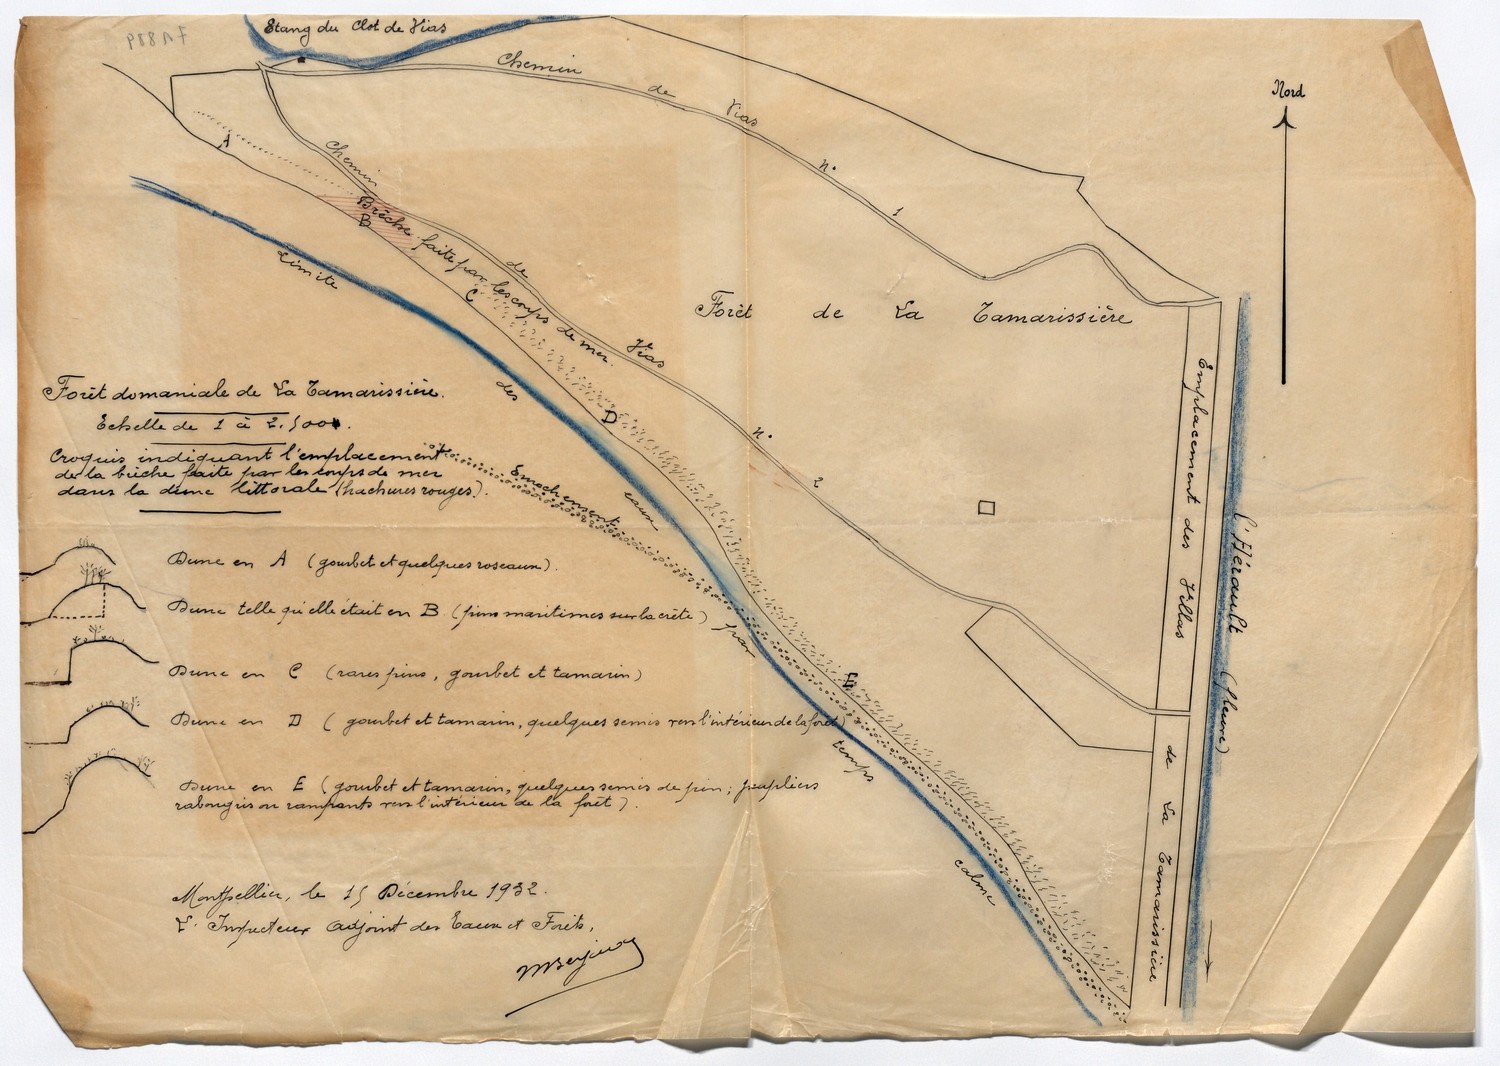 Etang du Clot de Vias
Chemin de Vias n° 1
Nord
A
Chemin de Vias n° 2
Brèche faite par les coups de mer.
B
C
D
E
Limite des eaux par temps calme
Forêt de La Tamarissière
Emplacement des Villas de La Tamarissière
L'Hérault (fleuve)
Enrochement
Forêt domaniale de La Tamarissière.
Echelle de 1 à 2.500.
Croquis indiquant l'emplacement
de la brèche faite par les coups de mer
dans la dune littorale (hachures rouges).
Dune en A (gourbet et quelques roseaux).
Dune telle qu'elle était en B (pins maritimes sur la crête)
Dune en C (rares pins, gourbet et tamarin)
Dune en D (gourbet et tamarin, quelques semis vers l'intérieur de la forêt)
Dune en E (gourbet et tamarin, quelques semis de pin; peupliers
rabougris ou rampants vers l'intérieur de la forêt).
Montpellier, le 15 Décembre 1932.
L'Inspecteur adjoint des Eaux et Forêts,